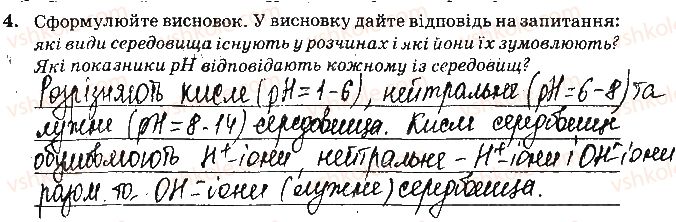 4. Сформулюйте висновок. У висновку дайте відповідь на запитання:
які види середовища існують у розчинах і які йони їх зумовлюють?
Які показники pH відповідають кожному із середовищ?
Розрізняють кисле (pH = 1-6), нейтральне (pH = 6-8) та
лужне (pH = 8-14) середовища. Кисле середовище
обумовлюють H⁺-іони, нейтральне - H⁺-іони і OH⁻-іони
разом та OH⁻-іони (лужне) середовища.